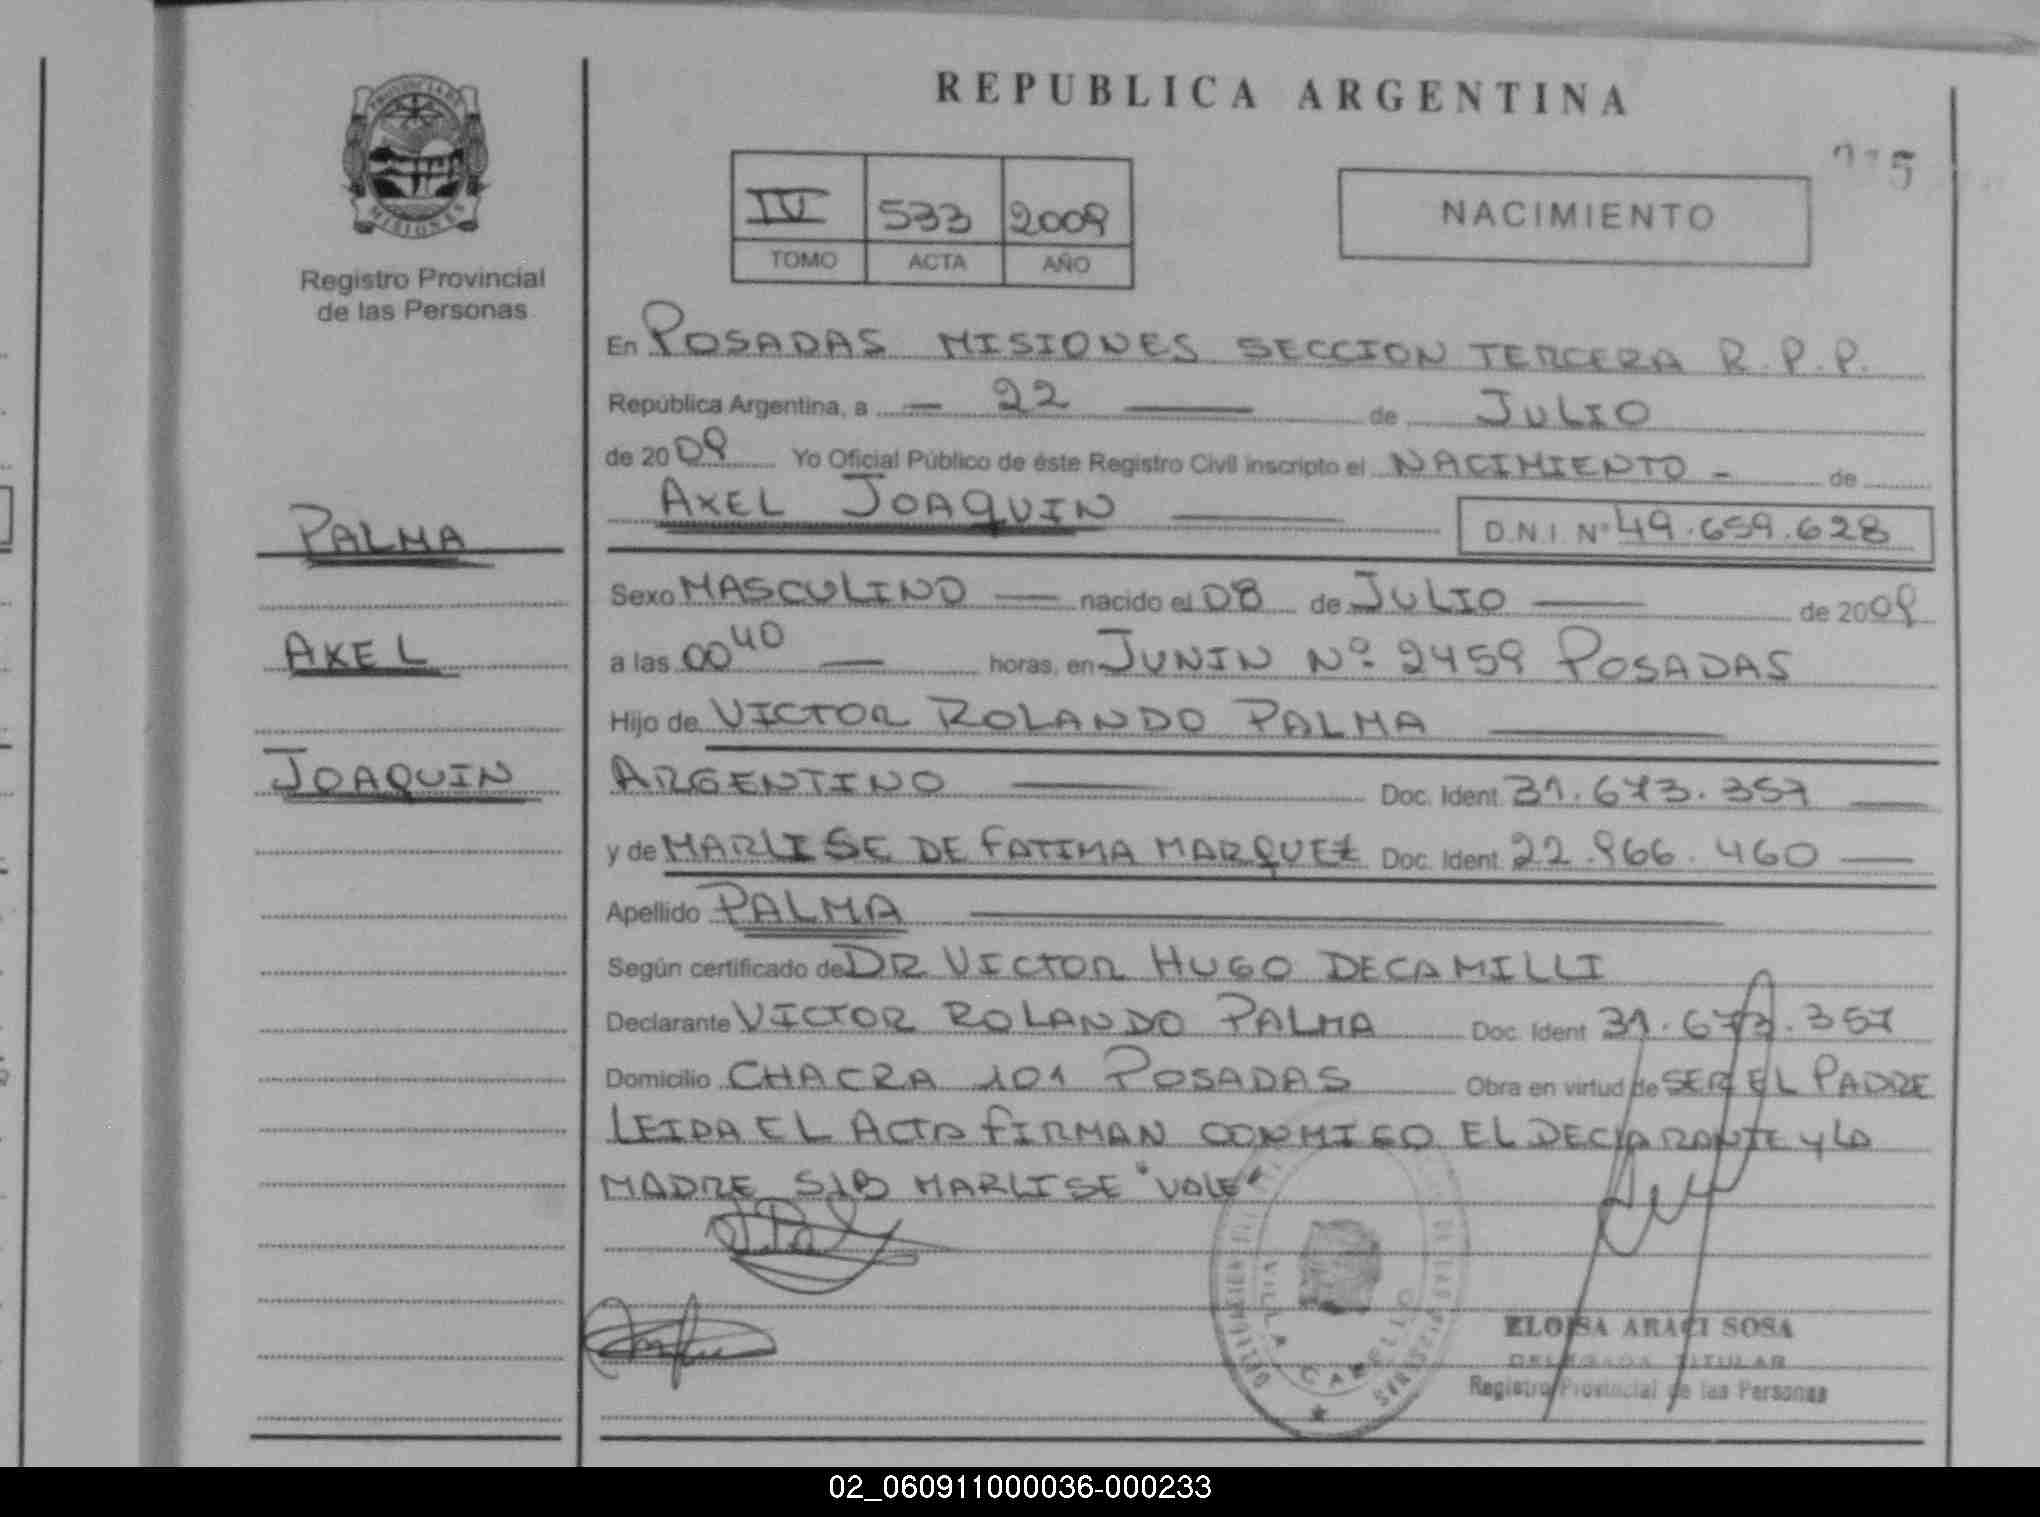 REPUBLICA ARGENTINA
PROVINCIA DE
MISIONES
Registro Provincial
de las Personas
IV 533 2009
TOMO ACTA AÑO
NACIMIENTO
En POSADAS MISIONES SECCION TERCERA R.P.P.
República Argentina, a — 22 — de JULIO
de 2009 Yo Oficial Público de éste Registro Civil inscripto el NACIMIENTO - de
AXEL JOAQUIN — D.N.I. Nº 49.659.628
PALMA
Sexo MASCULINO — nacido el 08 de JULIO — de 2009
AXEL
a las 00 40 — horas, en JUNIN Nº 2459 POSADAS
Hijo de VICTOR ROLANDO PALMA —
JOAQUIN
ARGENTINO — Doc. Ident. 31.673.357 —
y de MARLISE DE FATIMA MARQUEZ Doc. Ident. 22.966.460 —
Apellido PALMA —
Según certificado de DR VICTOR HUGO DECAMILLI
Declarante VICTOR ROLANDO PALMA Doc. Ident 31.673.357
Domicilio CHACRA 101 POSADAS Obra en virtud de SER EL PADRE
LEIDA EL ACTA FIRMAN CONMIGO EL DECLARANTE y LA
MADRE S/B MARLISE "VALE"
VILLA CABELLO
MISIONES
ELOISA ARACI SOSA
DELEGADA TITULAR
Registro Provincial de las Personas
02_060911000036-000233